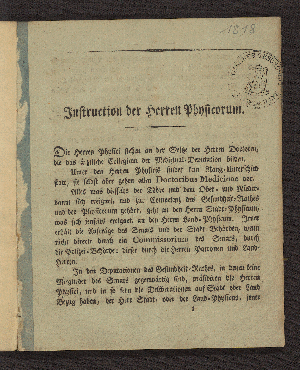 1818
Instruction der Herren Physicorum.
Die Herren Physici stehen an der Spitze der Herren Doctoren,
die das ärztliche Collegium der Medicinal-Deputation bilden.
Unter den Herren Physicis selbst kein Rang-Unterschied
statt, sie selbst aber gehen allen Doctoribus Medicinae vor.
Alles was diesseits der Elbe und dem Ober- und Nieder-
sich ereignet, und zur Competenz des Gesundheits-Rathes
und der Physicorum gehört, geht an den Herrn Stadt-Physicum,
was sich jenseits ereignet, an den Herrn Land-Physicum. Jener
erhält die Aufträge des Senats und der Stadt Behörden, wenn
nicht directe durch ein Commissorium des Senats, durch
die Polizei-Behörde; dieser durch die Herren Patronen und Land-
Herren.
In den Deputationen des Gesundheit-Rathes, in denen keine
Mitglieder des Senats gegenwärtig sind, präsidiren die Herren
Physici, und in so fern die Deliberationen auf Stadt oder Land
Bezug haben, der Herr Stadt- oder der Land-Physicus, jener